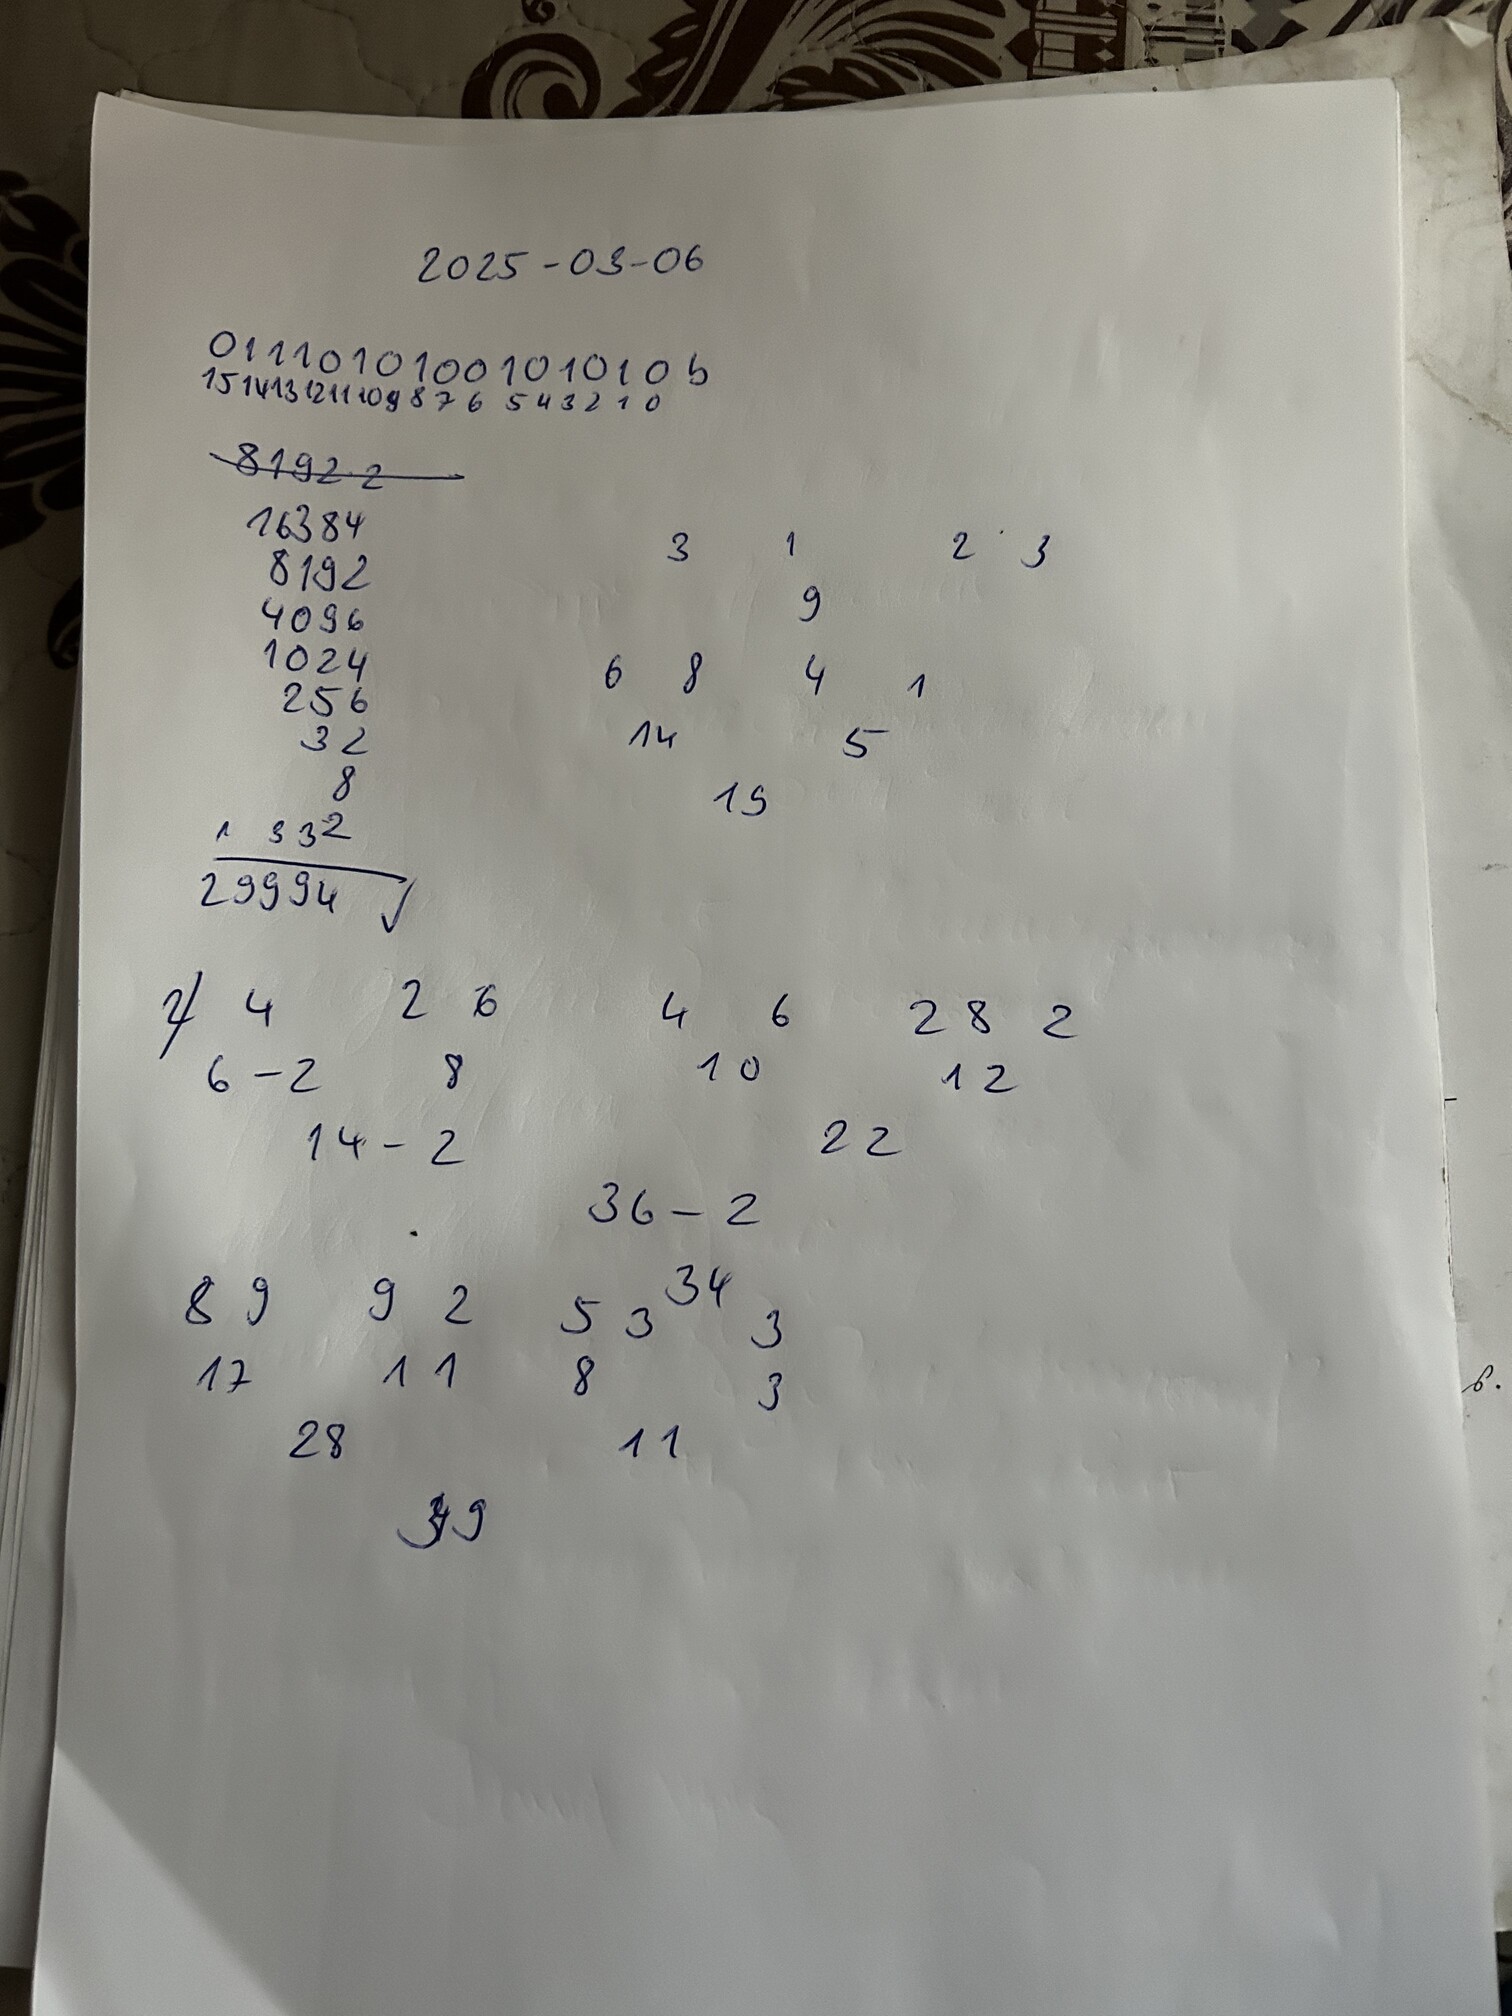 2025-03-06
0111010100101010 b
15 14 13 12 11 10 9 8 7 6 5 4 3 2 1 0
8192·2
16384
8192
4096
1024
256
32
8
2
1 33
29994
3 1 2 3
9
6 8 4 1
14 5
19
4 2 6 4 6 2 8 2
6-2 8 10 12
14-2 22
36-2
34
8 9 9 2 5 3 3
17 11 8 3
28 11
39
6.